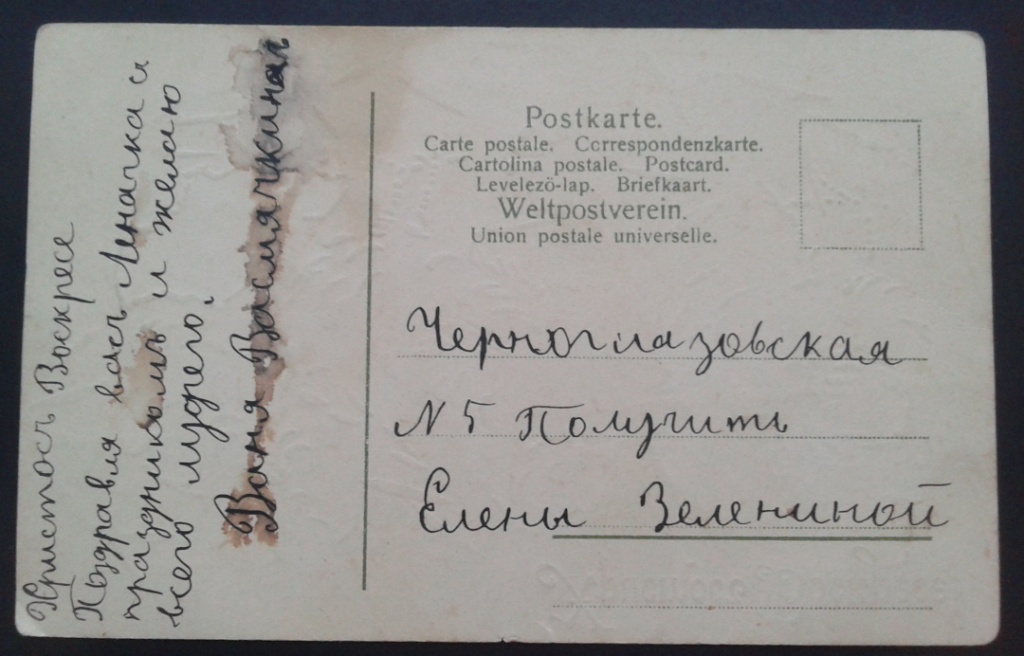 Христосъ Воскресе
Поздравля васъ Леначка съ
праздникомъ и желаю
всего лудчего.
Ваня Васмячкинал
Postkarte.
Carte postale. Correspondenzkarte.
Cartolina postale. Postcard.
Levelező-lap. Briefkaart.
Weltpostverein.
Union postale universelle.
Черноглазовская
N 5 Получить
Елены Зелениной